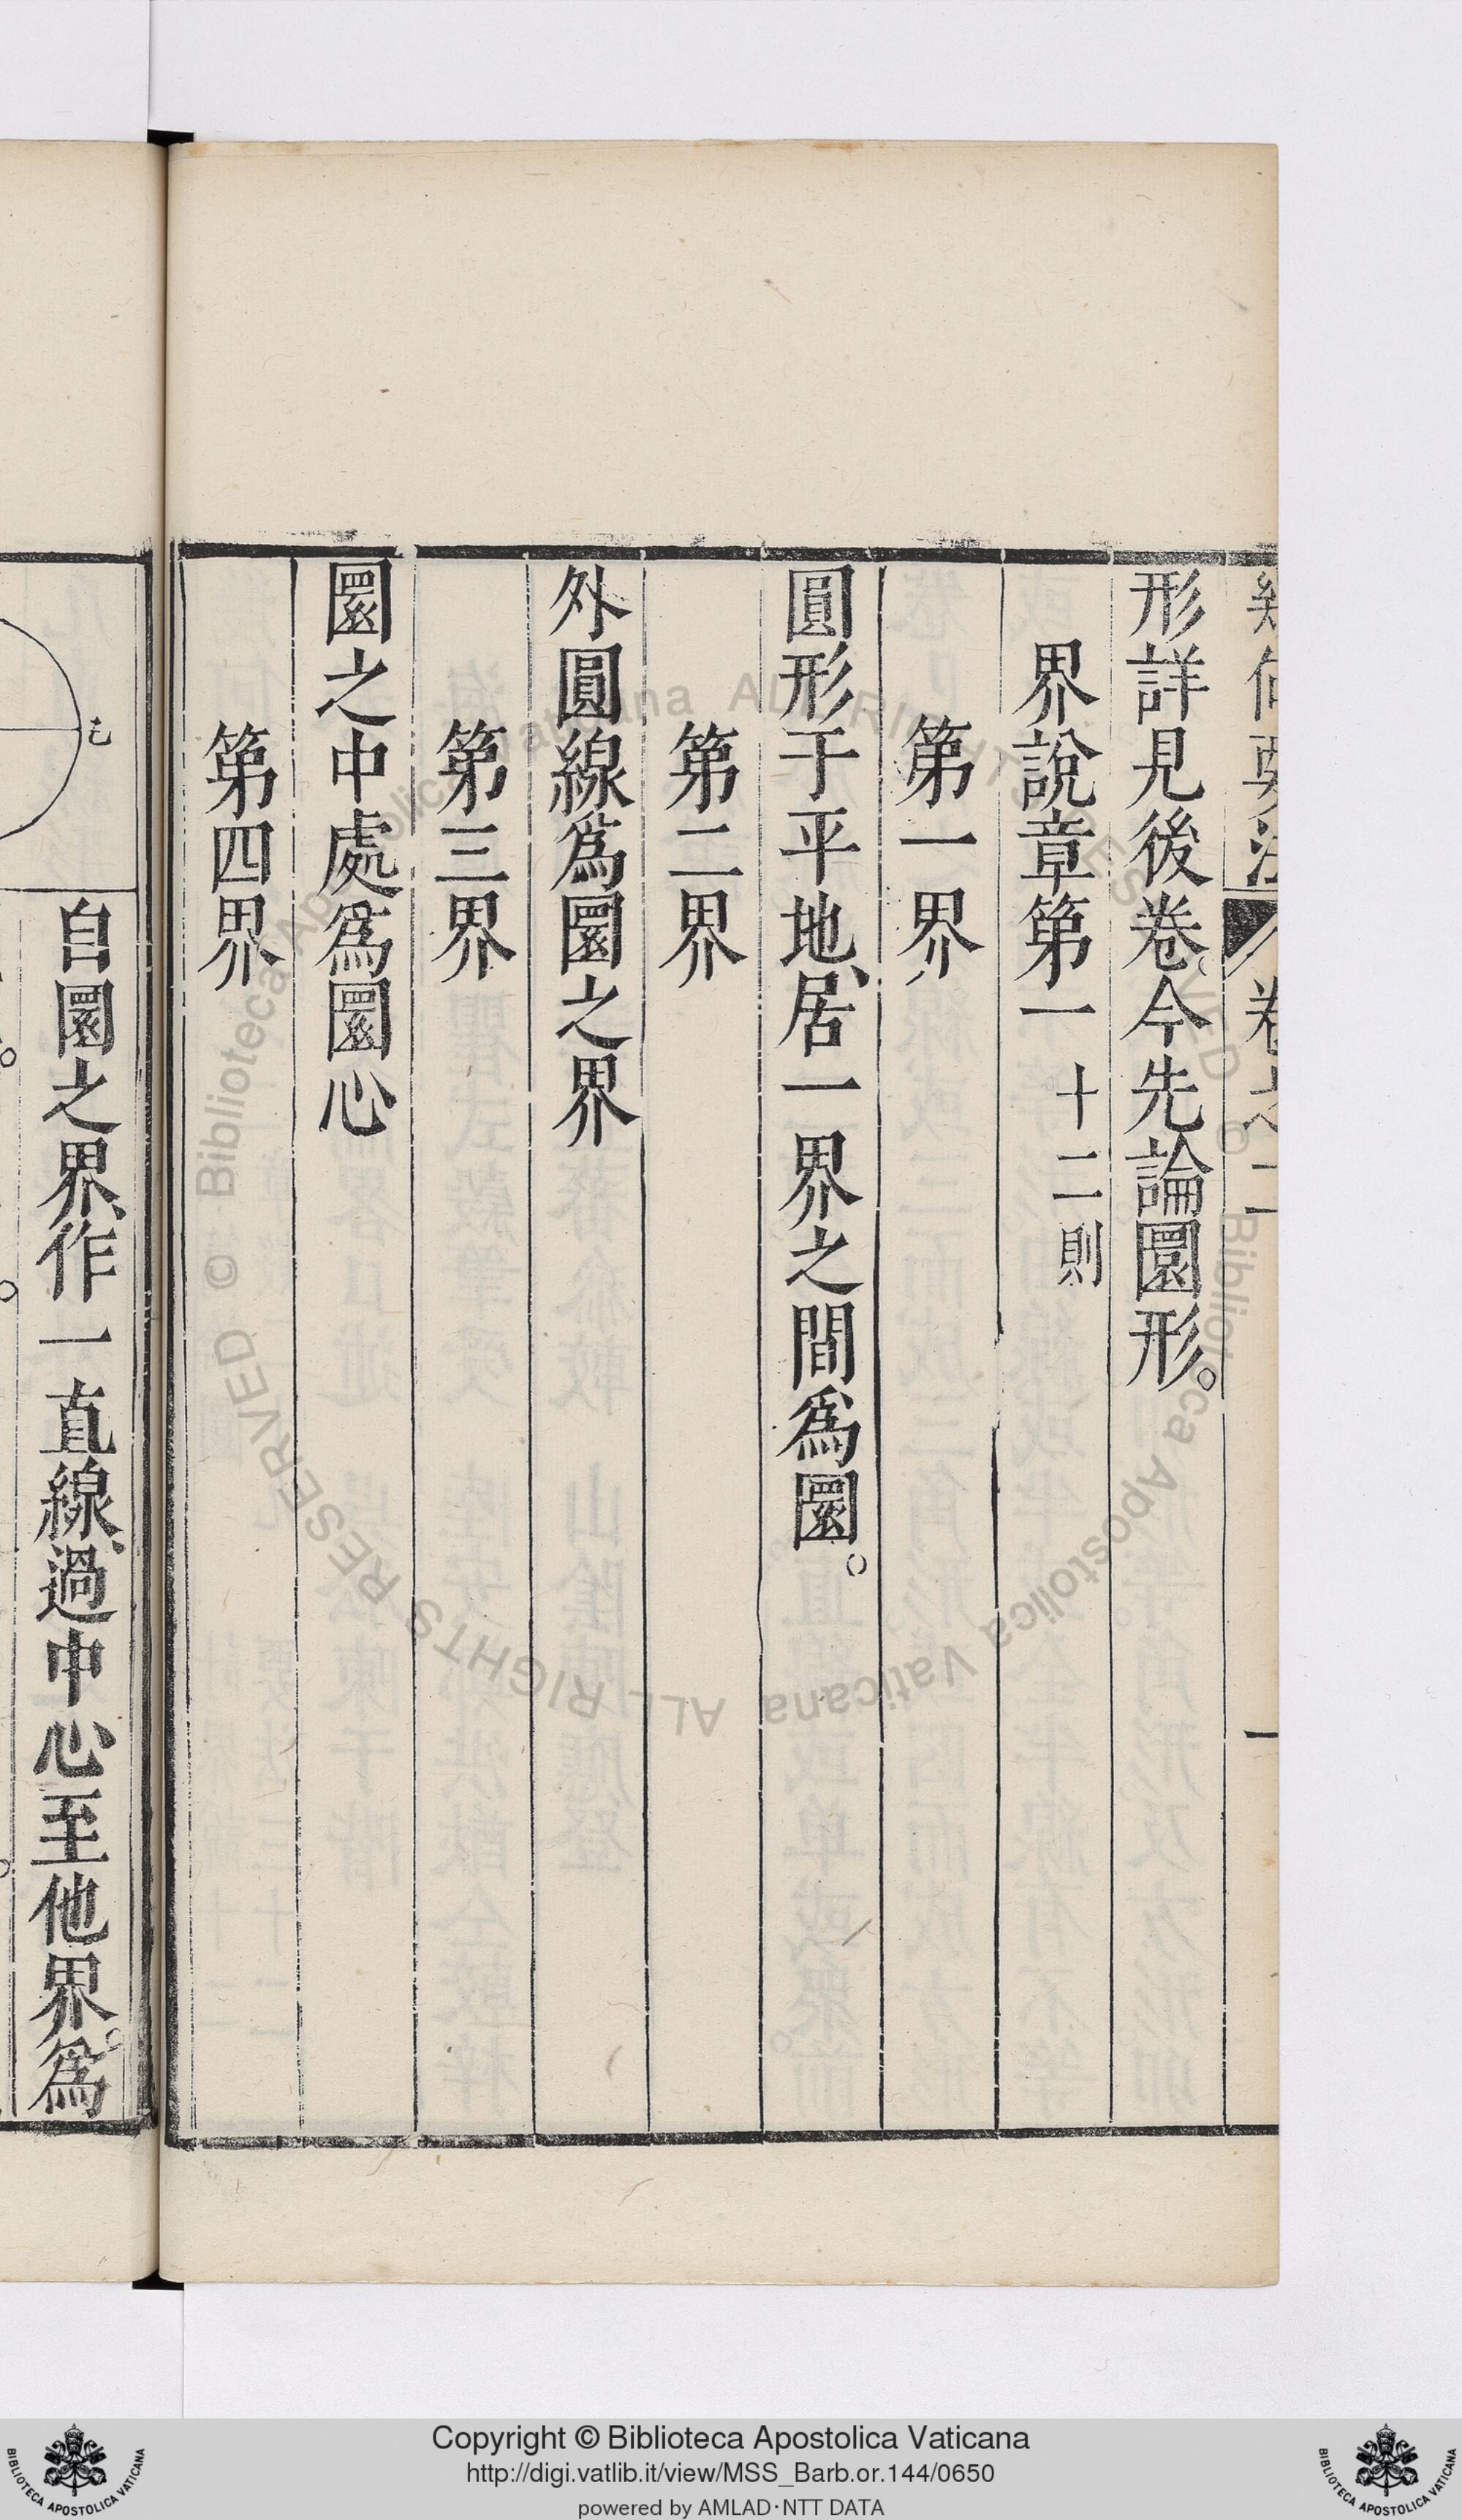 形詳見後卷。今先論圜形。
界說章第一 十二則
第一界
圓形于平地、居一界之間爲圜。
第二界
外圓線爲圜之界
第三界
圜之中處爲圜心
第四界
自圜之界、作一直線、過中心至他界。爲
Copyright © Biblioteca Apostolica Vaticana
http://digi.vatlib.it/view/MSS_Barb.or.144/0650
powered by AMLAD·NTT DATA
BIBLIOTECA APOSTOLICA VATICANA
BIBLIOTECA APOSTOLICA VATICANA